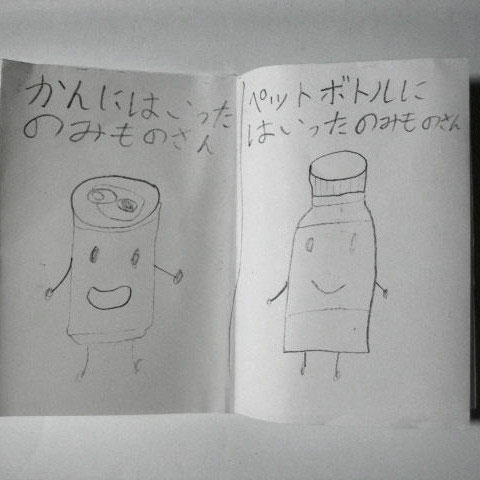 かんにはいった
のみものさん
ペットボトルに
はいったのみものさん